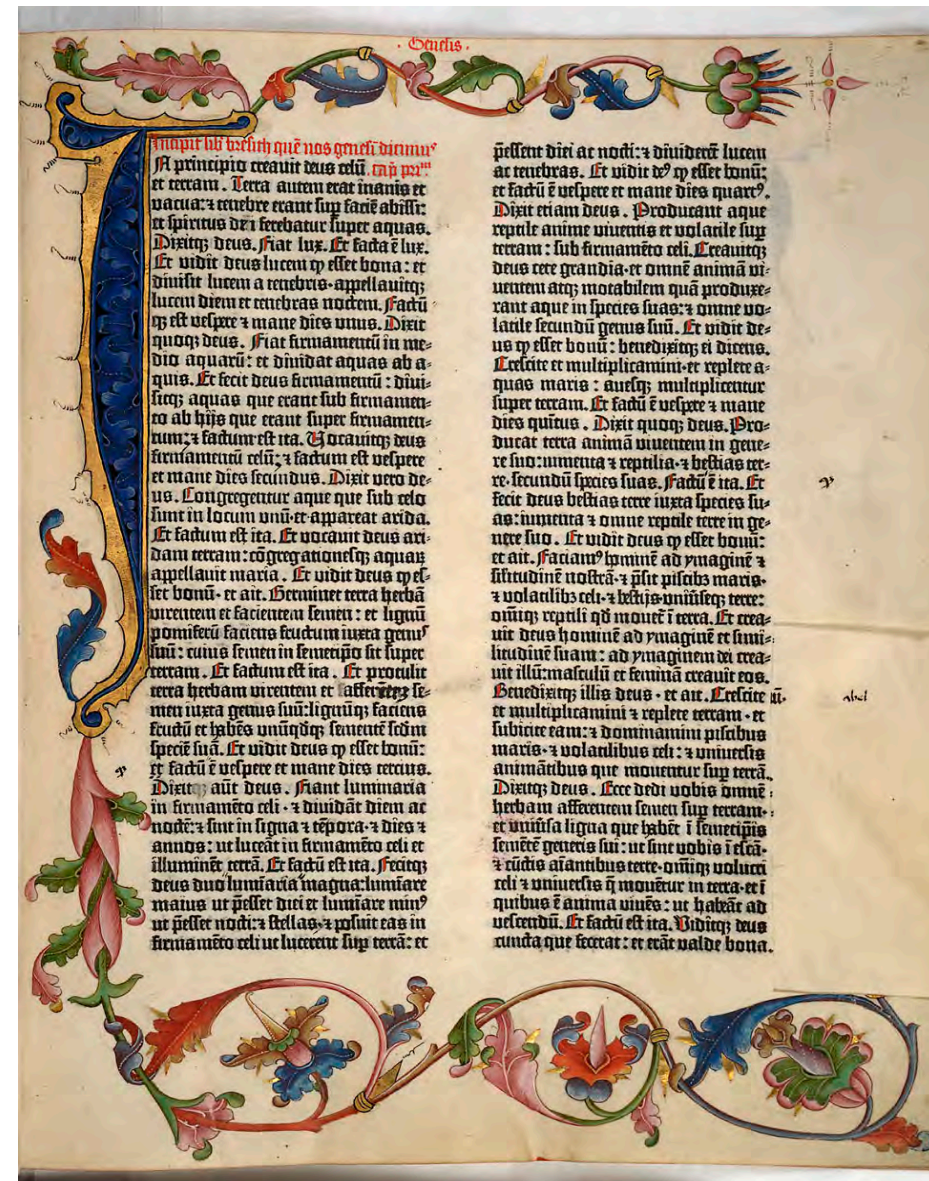 · Genesis ·
Incipit lib᷑ bresith quē nos genesī dicimus
IN principio creauit deus celū cap̄ pm̄.
et terram. Terra autem erat inanis et
vacua: ⁊ tenebre erant sup̄ faciē abissi:
et spiritus dei ferebatur super aquas.
Dixitqꝫ deus. Fiat lux. Et facta ē lux.
Et vidit deus lucem qꝙ esset bona: et
diuisit lucem a tenebris · appellauitqꝫ
lucem diem et tenebras noctem. Factū
qꝫ est vespere ⁊ mane dies vnus. Dixit
quoqꝫ deus. Fiat firmamentū in me⸗
dio aquarū: et diuidat aquas ab a⸗
quis. Et fecit deus firmamentū: diui⸗
sitqꝫ aquas que erant sub firmamen⸗
to ab hijs que erant super firmamen⸗
tum: ⁊ factum est ita. Vocauitqꝫ deus
firmamentū celū: ⁊ factum est vespere
et mane dies secundus. Dixit vero de⸗
us. Congregentur aque que sub celo
sunt in locum vnū · et appareat arida.
Et factum est ita. Et vocauit deus ari⸗
dam terram: cōgregationesqꝫ aquaꝝ
appellauit maria. Et vidit deus ꝙ es⸗
set bonū · et ait. Germinet terra herbā
virentem et facientem semen: et lignū
pomiferū faciens fructum iuxta genus
suū: cuius semen in semetipō sit super
terram. Et factum est ita. Et protulit
terra herbam virentem et afferētem se⸗
men iuxta genus suū: lignūqꝫ faciens
fructū et habēs vnūqdqꝫ sementē scdm̄
speciē suā. Et vidit deus ꝙ esset bonū:
et factū ē vespere et mane dies tercius.
Dixitqꝫ aūt deus. Fiant luminaria
in firmamēto celi · ⁊ diuidāt diem ac
noctē: ⁊ sint in signa ⁊ tēpora · ⁊ dies ⁊
annos: ut luceāt in firmamēto celi et
illuminēt terrā. Et factū est ita. Fecitqꝫ
deus duo lumīaria magna: lumīare
maius ut p̄esset diei et lumīare minꝰ
ut p̄esset nocti: ⁊ stellas · ⁊ posuit eas in
firmamēto celi ut lucerent sup̄ terrā: et
p̄essent diei ac nocti: ⁊ diuiderēt lucem
ac tenebras. Et vidit dꝰ ꝙ esset bonū:
et factū ē vespere et mane dies quartꝰ.
Dixit etiam deus. Producant aque
reptile anime viuentis et volatile sup̄
terram: sub firmamēto celi. Creauitqꝫ
deus cete grandia · et omnē animā vi⸗
uentem atqꝫ motabilem quā produxe⸗
rant aque in species suas: ⁊ omne vo⸗
latile secundū genus suū. Et vidit de⸗
us ꝙ esset bonū: benedixitqꝫ ei dicens.
Crescite et multiplicamini · et replete a⸗
quas maris: auesqꝫ multiplicentur
super terram. Et factū ē vespere ⁊ mane
dies quītus. Dixit quoqꝫ deus. Pro⸗
ducat terra animā viuentem in gene⸗
re suo: iumenta ⁊ reptilia · ⁊ bestias ter⸗
re · secundū species suas. Factū ē ita. Et
fecit deus bestias terre iuxta species su⸗
as: iumenta ⁊ omne reptile terre in ge⸗
nere suo. Et vidit deus ꝙ esset bonū:
et ait. Faciamꝰ hominē ad ymaginē ⁊
silitudinē nostrā · ⁊ p̄sit piscibꝫ maris ·
⁊ volatilibꝫ celi · ⁊ bestijs · vniūseqꝫ terre:
omīqꝫ reptili qd̄ mouet̄ ī terra. Et crea⸗
uit deus hominē ad ymaginē et simi⸗
litudinē suam: ad ymaginem dei crea⸗
uit illū: masculū et feminā creauit eos.
Benedixitqꝫ illis deus · et ait. Crescite
et multiplicamini ⁊ replete terram · et
subicite eam: ⁊ dominamini piscibus
maris · ⁊ volatilibus celi: ⁊ vniuersis
animātibus que mouentur sup̄ terrā.
Dixitqꝫ deus. Ecce dedi vobis omnē
herbam afferentem semen sup̄ terram ·
et vniūsa ligna que habēt ī semetip̄is
semētē generis sui: ut sint vobis ī escā ·
⁊ cūctis aīantibus terre · omīqꝫ volucri
celi ⁊ vniuersis q̄ mouētur in terra · et ī
quibus ē anima viuēs: ut habeāt ad
vescendū. Et factū est ita. Viditqꝫ deus
cuncta que fecerat: et erāt valde bona.